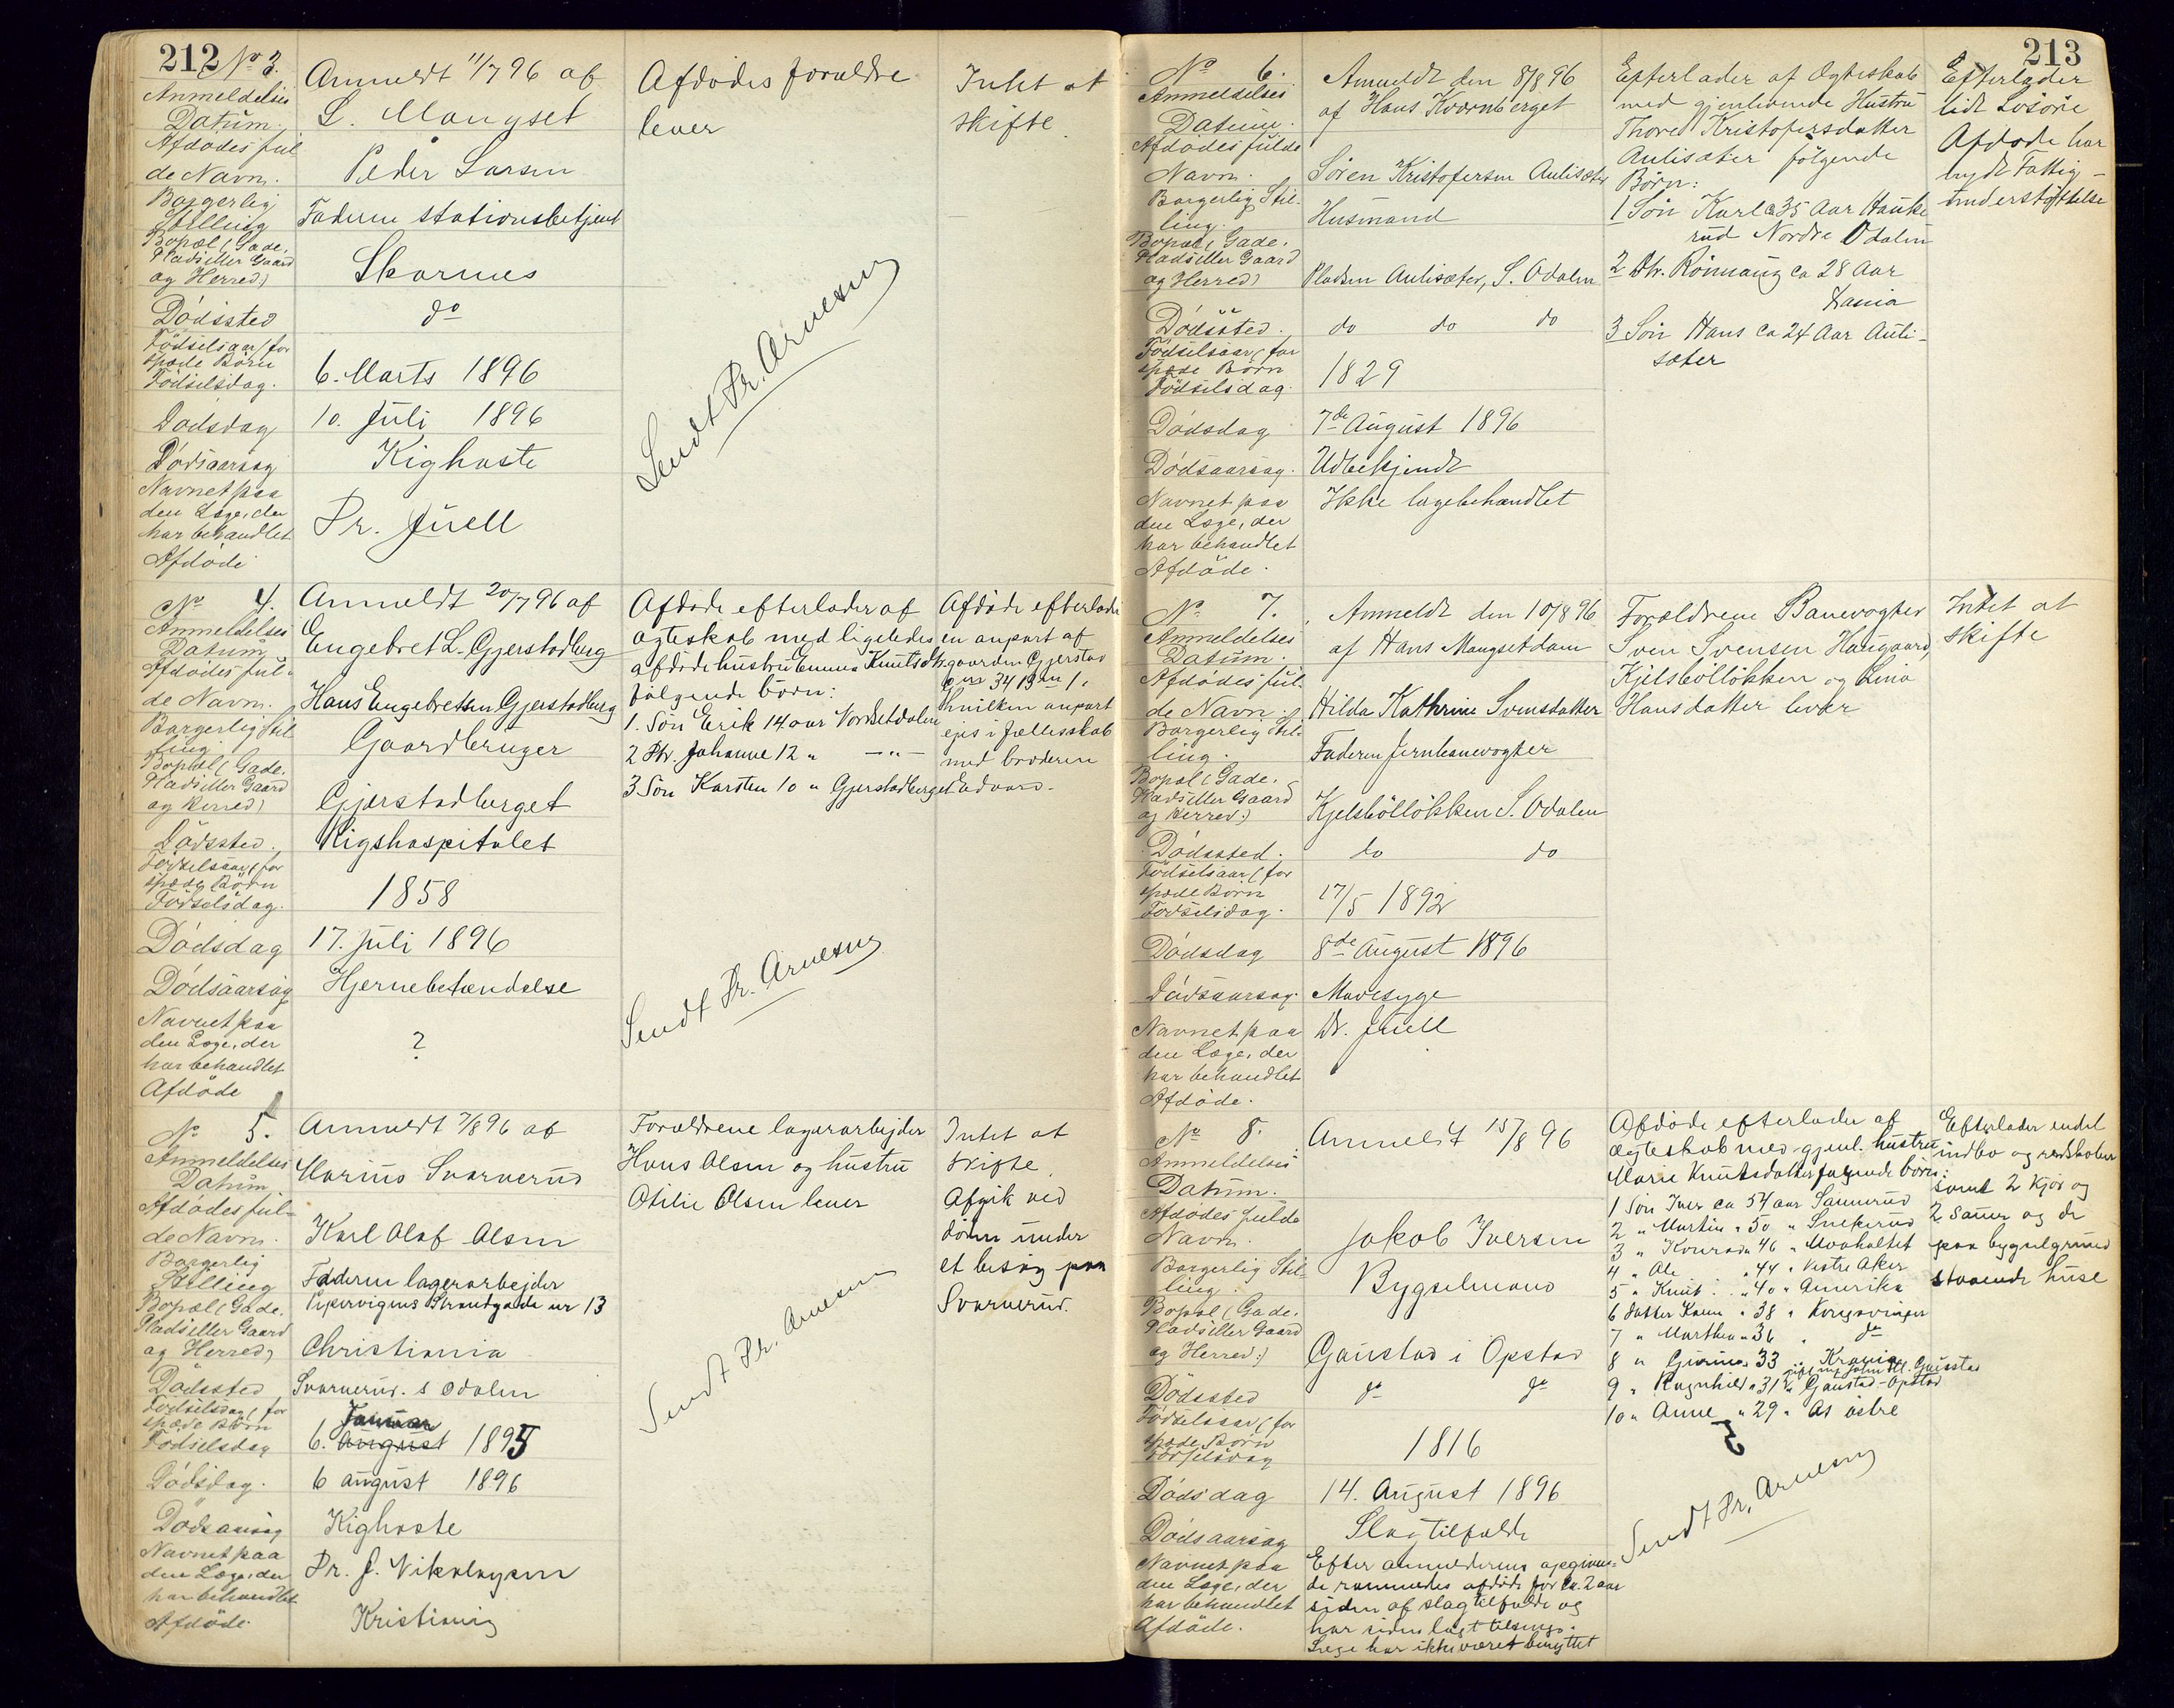 212 No 3.
Anmeldelses
Datum.
Afdødes ful
de Navn.
Borgerlig
Stilling
Bopæl (Gade,
Plads eller Gaard
og Herred)
Dödssted
Födselsaar (for
spæde Börn
Födselsdag.
Dödsdag
Dödsaarsag
Navnet paa
den Læge, der
har behandlet
Afdöde
Anmeldt 11/7 96 af
L. Mangset
Peder Larsen
Faderen stationsbetjent
Skarnes
do
6. Marts 1896
10. Juli 1896
Kighoste
Dr. Juell
Afdødes forældre
lever
Sendt Dr. Arnesen
Intet at
skifte
No 4.
Anmeldelses
Datum
Afdödes ful-
de Navn.
Borgerlig Stil
ling
Bopæl (Gade,
Plads eller Gaard
og Herred)
Dödssted.
Födselsaar (for
spæde Börn
Födselsdag.
Dödsdag
Dödsaarsag
Navnet paa
den Læge, der
har behandlet
Afdöde
Anmeldt 20/7 96 af
Engebret L. Gjerstadberg
Hans Engebretsen Gjerstadberg
Gaardbruger
Gjerstadberget
Rigshospitalet
1858
17. Juli 1896
Hjernebetændelse
?
Afdøde efterlader af
ægteskab med ligeledes
afdöde hustru Emma Knutsdtr
følgende børn:
1. Søn Erik 14 aar
2 Dtr. Johanne 12 " —"—
3 Søn Karsten 10 " Gjerstadberget
Sendt Dr. Arnesen
Afdöde efterlader
en anpart af
gaarden Gjerstad
gnr 34 1,
hvilken anpart
ejes i fællesskab
med broderen
Edvard.
No 5.
Anmeldelses
Datum
Afdödes ful-
de Navn.
Borgerlig
Stilling
Bopæl (Gade,
Plads eller Gaard
og Herred)
Dödssted
Födselsdag (for
spæde Börn
Födselsdag
Dödsdag.
Dödsaarsag
Navnet paa
den Læge, der
har behandlet
Afdöde.
Anmeldt 7/8 96 af
Marius Svarverud
Karl Olaf Olsen
Faderen lagerarbejder
Pipervigens Strandgade nr 13
Christiania
Svarverud. S Odalen
Januar
6. August 1895
6 august 1896
Kighoste
Dr. J. Nikolaysen
Kristiania
Forældrene lagerarbejder
Hans Olsen og hustru
Otilie Olsen lever
Sendt Dr. Arnesen
Intet at
skifte.
Afgik ved
døden under
et besøg paa
Svarverud.
213
No 6.
Anmeldelses
Datum.
Afdödes fulde
Navn.
Borgerlig Stil-
ling.
Bopæl (Gade,
Plads eller Gaard
og Herred)
Dödssted.
Födselsaar (for
spæde Börn
Födselsdag.
Dödsdag
Dödsaarsag.
Navnet paa
den Læge, der
har behandlet
Afdöde.
Anmeldt den 8/8 96
af Hans Kværnberget
Sören Kristofersen Aulisæter
Husmand
Pladsen Aulisæter, S. Odalen
do do do
1829
7de August 1896
Ubekjendt
Ikke lægebehandlet
Efterlader af Ægteskab
med gjenlevende Hustru
Thore Kristofersdatter
Aulisæter følgende
Börn:
1 Sön Karl ca 35 Aar Hauke
rud Nordre Odalen
2 Dtr. Rönnaug ca 28 Aar
3 Sön Hans ca 24 Aar Auli-
sæter
Efterlader
lidt Løsöre
Afdøde har
nydt Fattig-
understöttelse
No 7.
Anmeldelses
Datum.
Afdödes ful-
de Navn.
Borgerlig Stil-
ling.
Bopæl (Gade,
Plads eller Gaard
og Herred.)
Dödssted.
Födselsaar (for
spæde Börn
Födselsdag.
Dödsdag
Dödsaarsag.
Navnet paa
den Læge, der
har behandlet
Afdöde.
Anmeldt den 10/8 96
af Hans Mangsetdam
Hilda Kathrine Svensdatter
Faderen Jernbanevogter
Kjelsböllökken S. Odalen
do do
17/5 1892
8de August 1896
Mavesyge
Dr. Juell
Forældrene Banevogter
Sven Svensen Haugaard,
Kjelsböllökken og Lina
Hansdatter lever
Intet at
skifte
No 8.
Anmeldelses
Datum.
Afdödes fulde
Navn.
Borgerlig Stil-
ling.
Bopæl (Gade,
Plads eller Gaard
og Herred:)
Dödssted
Födselsaar (for
spæde Börn
Födselsdag
Dödsdag
Dödsaarsag
Navnet paa
den Læge, der
har behandlet
Afdöde.
Anmeldt 15/8 96
Jakob Iversen
Bygselmand
Gaustad i Opstad
do do
1816
14. August 1896
Slagtilfælde
Efter anmelderens opgiven-
de rammedes afdøde for ca. 2 aar
siden af slagtilfælde og
har siden lagt tilsengs.
Læge har ikke været benyttet
Afdöde efterlader af
ægteskab med gjenl. hustru
Marie Knutsdatter følgende børn:
1 Søn Iver ca 54 aar Sannerud
2 " Martin " 50 " Snekerud
3 " Konrad " 46 " Moaholtet
4 " Ole " 44 " Vestre Aker
5 " Knut " 40 " Amerika
6 datter Karen " 38 " Kongsvinger
7 " Marthea " 36 " do
8 " 33 Krania
9 " Ragnhild " 31 " Gaustad-Opstad
10 " Anne " 29 " Os østre
Sendt Dr. Arnesen
Efterlader endel
indbo og redskaber
samt 2 kjør og
2 sauer og de
paa bygselgrund
staaende huse